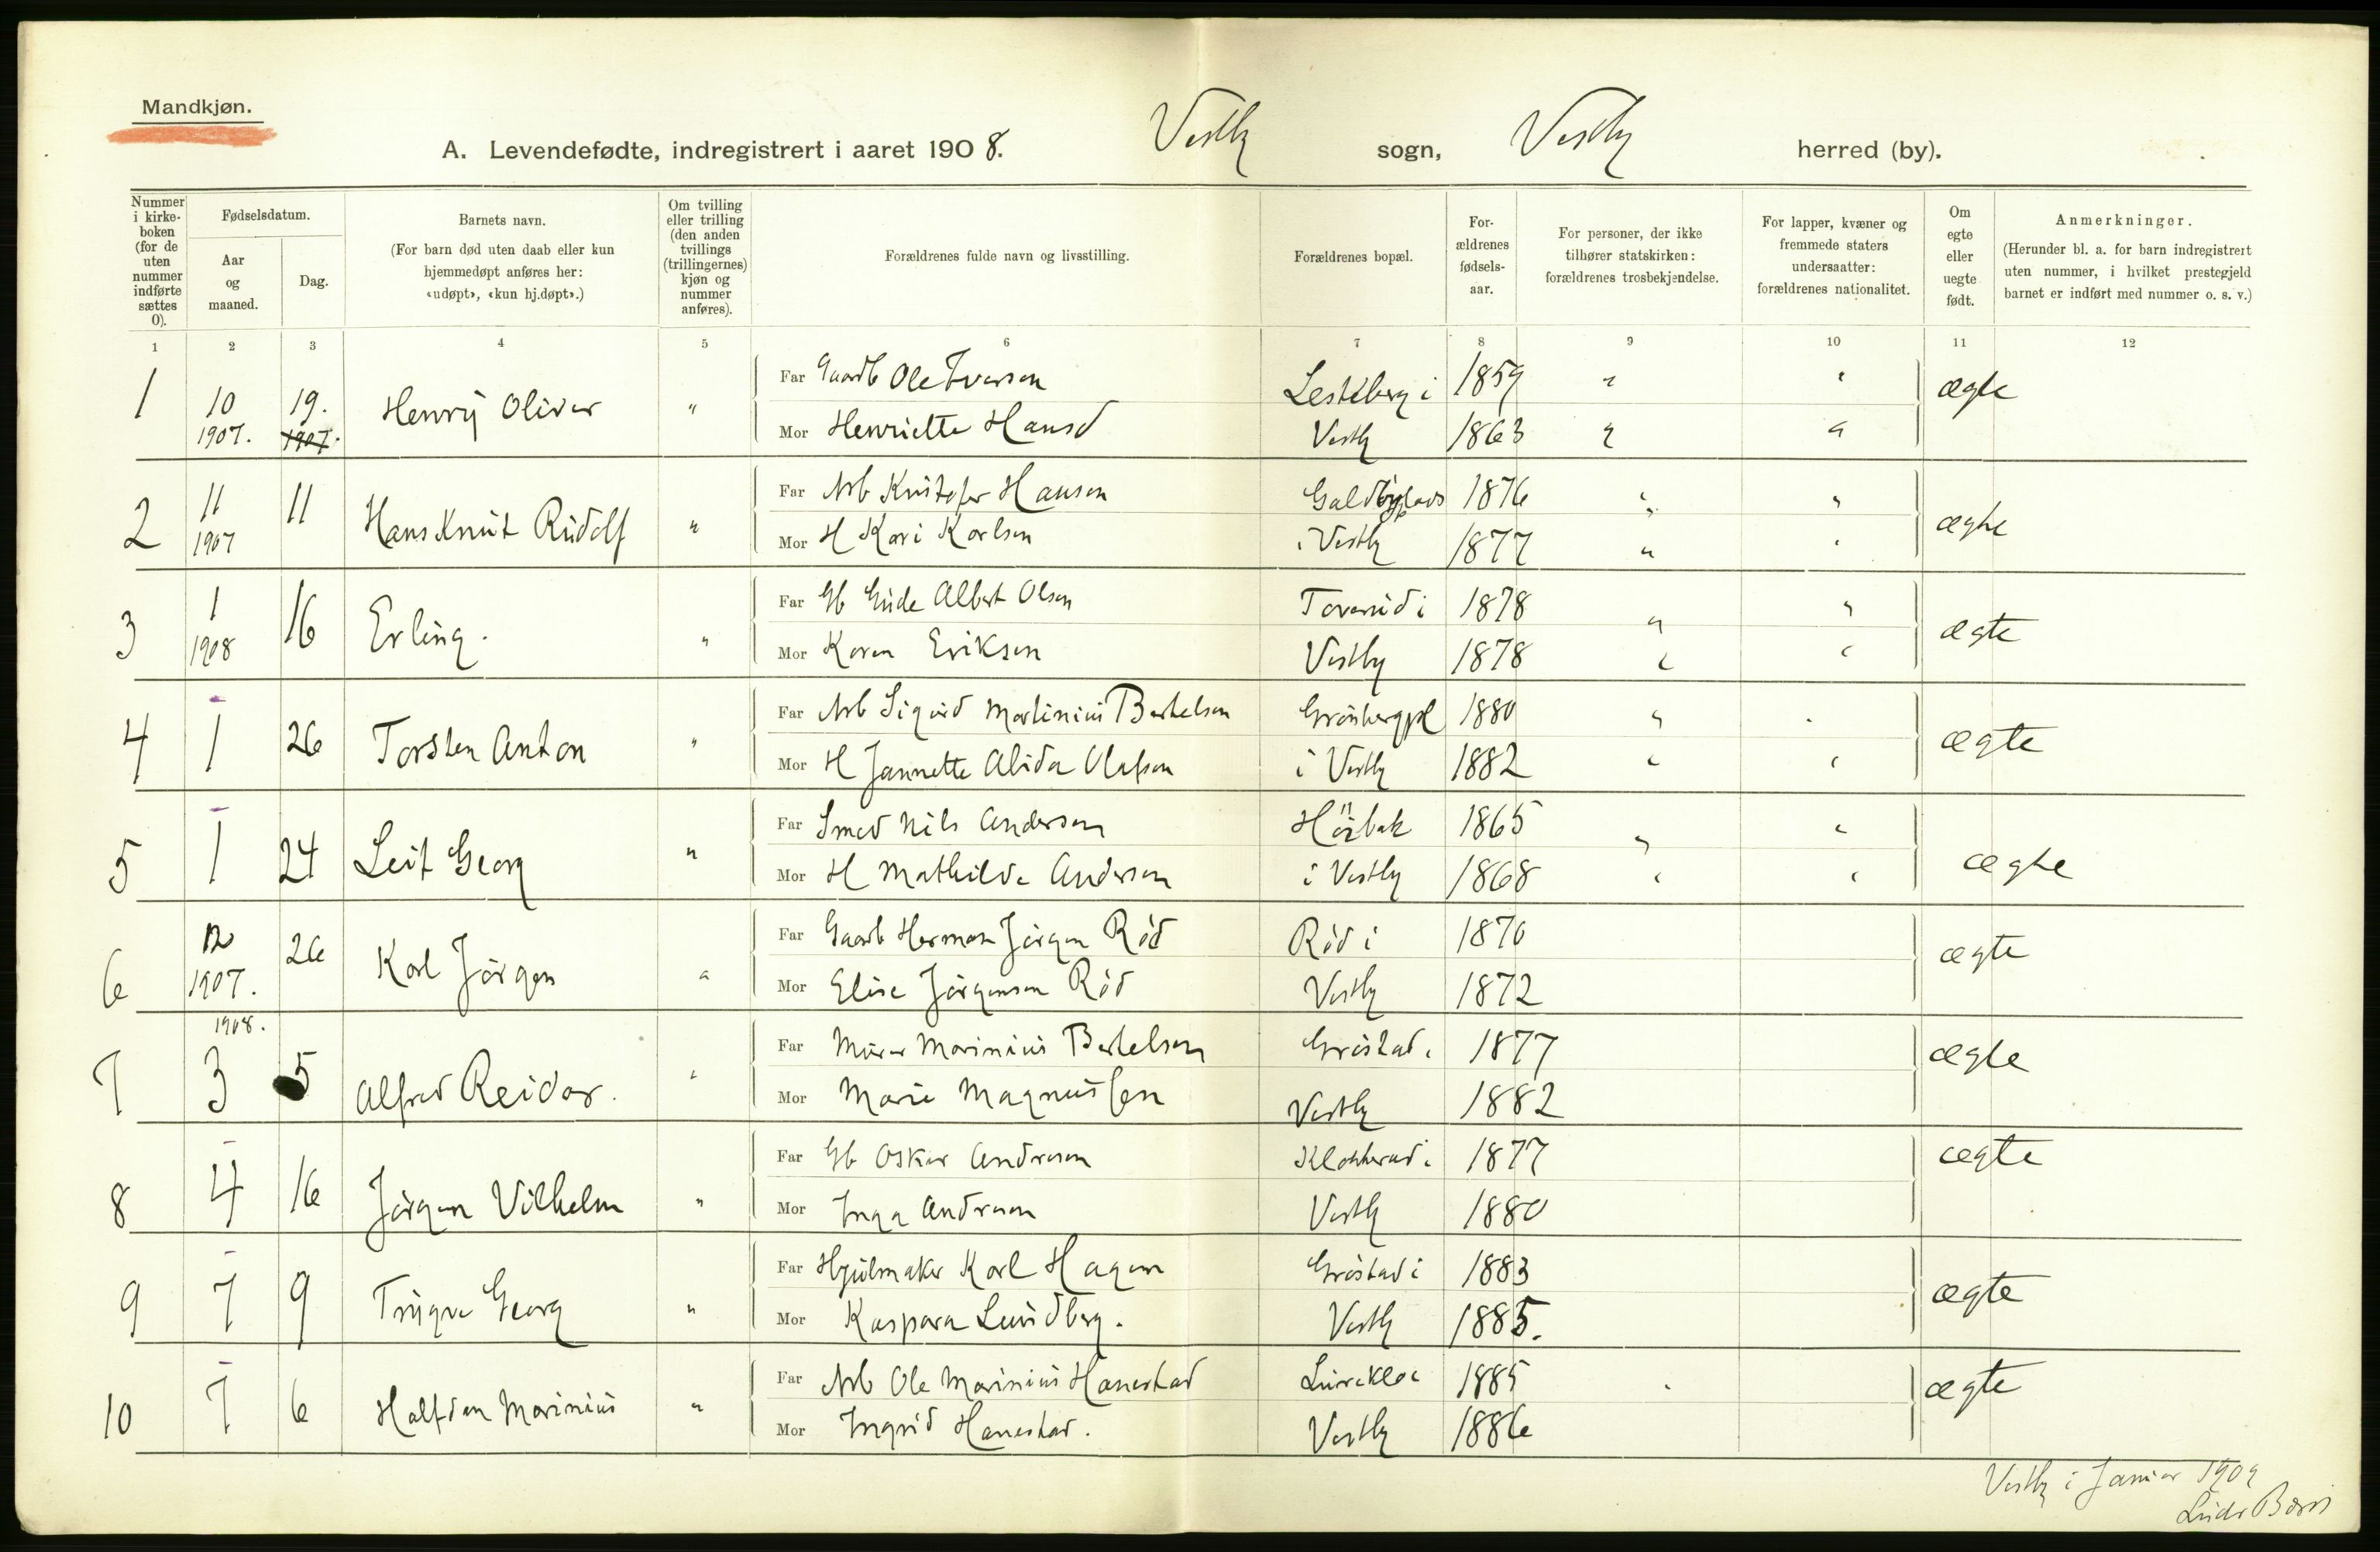 Mandkjøn.
A. Levendefødte, indregistrert i aaret 1908. Vestby sogn, Vestby herred (by).
Nummer i kirkeboken (for de uten nummer indførte sættes 0).
Fødselsdatum.
Aar og maaned.
Dag.
Barnets navn.
(For barn død uten daab eller kun hjemmedøpt anføres her: «udøpt», «kun hj.døpt».)
Om tvilling eller trilling (den anden tvillings (trillingernes) kjøn og nummer anføres).
Forældrenes fulde navn og livsstilling.
Forældrenes bopæl.
Forældrenes fødselsaar.
For personer, der ikke tilhører statskirken: forældrenes trosbekjendelse.
For lapper, kvæner og fremmede staters undersaatter: forældrenes nationalitet.
Om egte eller uegte født.
Anmerkninger.
(Herunder bl. a. for barn indregistrert uten nummer, i hvilket prestegjeld barnet er indført med nummer o. s. v.)
1 2 3 4 5 6 7 8 9 10 11 12
1 10 1907. 19. 1907. Henrÿ Oliver " Far Gaardb Ole Iversen 1859 " " ægte
Mor Henriette Hansd Vestby 1863 " "
2 11 1907 11 Hans Knut Rudolf " Far Arb Kristofer Hansen 1876 " " ægte
Mor H Kari Karlsen i Vestby 1877 " "
3 1 1908 16 Erling. " Far Gb Gude Albert Olsen Toverud i 1878 " " ægte
Mor Karen Eriksen Vestby 1878 " "
4 1 26 Torsten Anton " Far Arb Sigurd Martinius Bertelsen 1880 " " ægte
Mor H Jannette Alida Olafsen i Vestby 1882 " "
5 1 24 Leif Georg " Far Smed Nils Andersen 1865 " " ægte
Mor H Mathilde Andersen i Vestby 1868 " "
6 12 1907. 26 Karl Jörgen " Far Gaardb Herman Jörgen Röd Röd i 1870 ægte
Mor Elise Jörgensen Röd Vestby 1872
7 1908. 3 5 Alfred Reidar. " Far Murer Marinius Bertelsen Gröstad i 1877 ægte
Mor Marie Magnussen Vestby 1882
8 4 16 Jörgen Vilhelm " Far Gb Oskar Andresen 1877 ægte
Mor Inga Andresen Vestby 1880
9 7 9 Trygve Georg " Far Hjulmaker Karl Hagen Gröstad i 1883 ægte
Mor Kaspara Lundberg. Vestby 1885.
10 7 6 Halfdan Marinius " Far Arb Ole Marinius Hanestad 1885 ægte
Mor Ingrid Hanestad. Vestby 1886
Vestby i Januar 1909